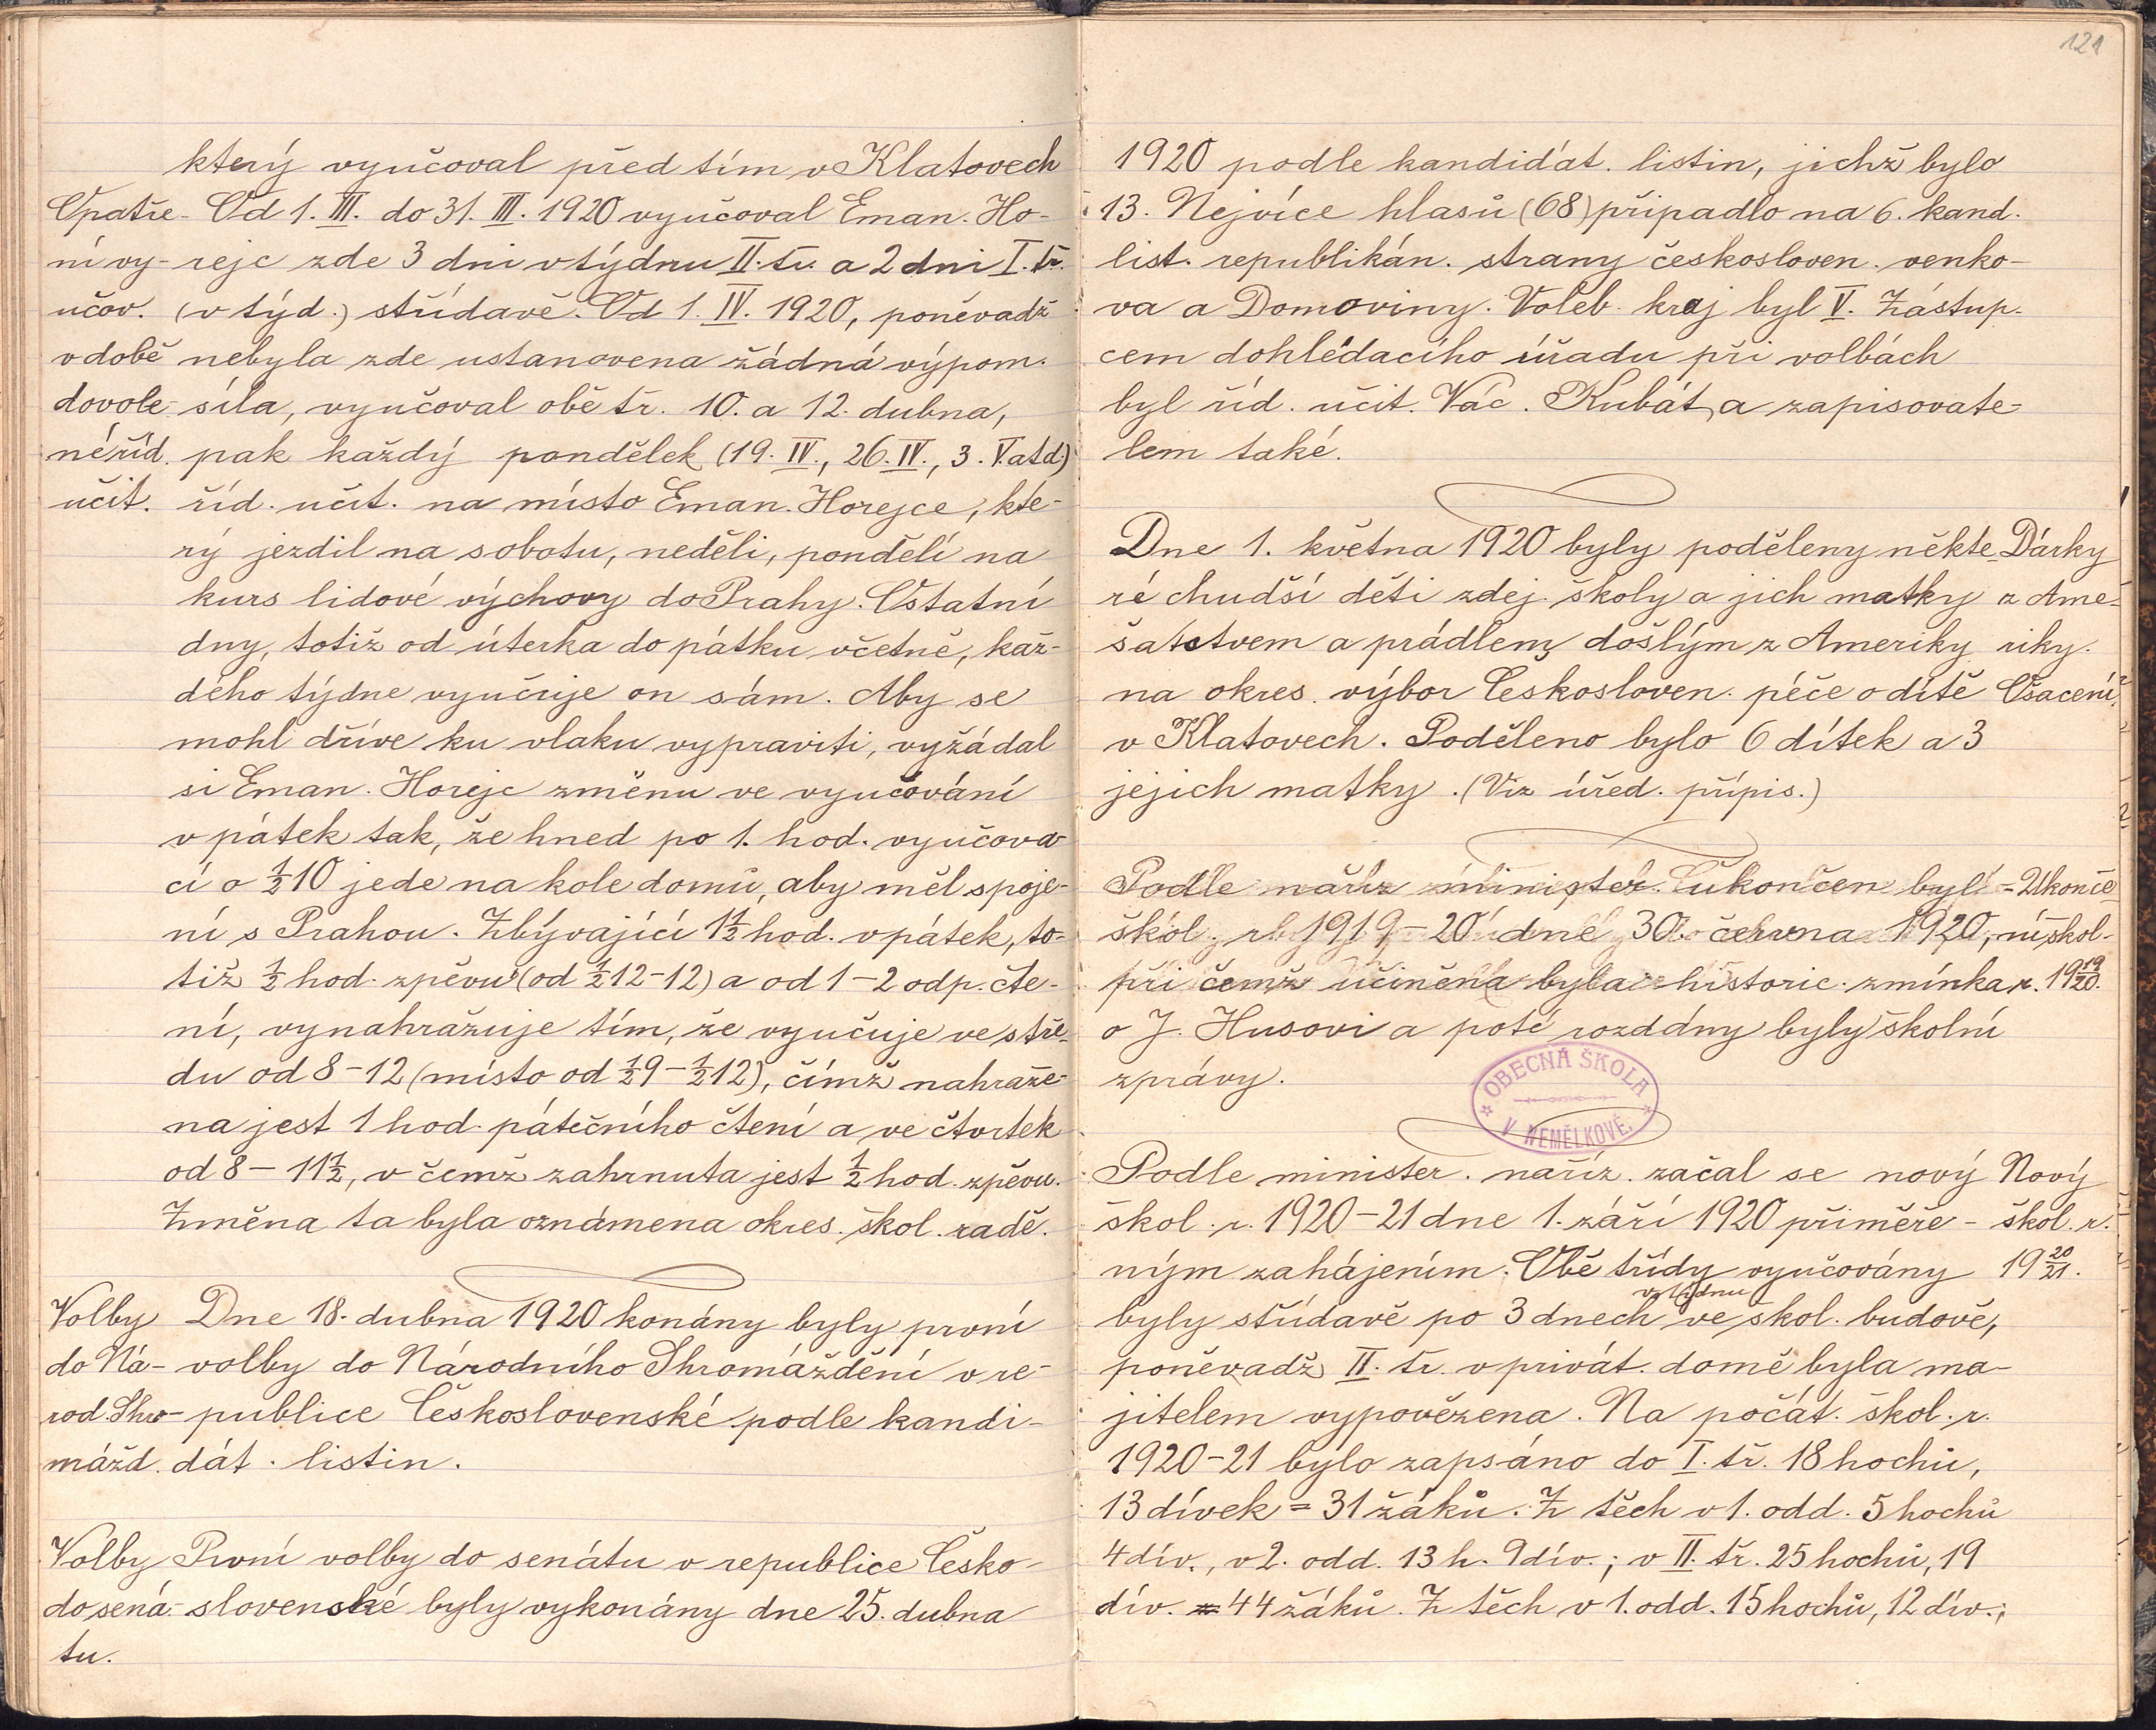 121
který vyučoval před tím v Klatovech
Opatře- Od 1. III. do 31. III. 1920 vyučoval Eman. Ho-
ní vy- rejc zde 3 dni v týdnu II. tř. a 2 dni I. tř.
učov. (v týd.) střídavě. Od 1. IV. 1920, poněvadž
v době nebyla zde ustanovena žádná výpom.
dovole- síla, vyučoval obě tř. 10. a 12. dubna,
né říd. pak každý pondělek (19. IV., 26. IV., 3. V. atd.)
učit. říd. učit. na místo Eman. Horejce, kte-
rý jezdil na sobotu, neděli, pondělí na
kurs lidové výchovy do Prahy. Ostatní
dny, totiž od úterka do pátku včetně, kaž-
dého týdne vyučuje on sám. Aby se
mohl dříve ku vlaku vypraviti, vyžádal
si Eman. Horejc změnu ve vyučování
v pátek tak, že hned po 1. hod. vyučova-
cí o ½10 jede na kole domů, aby měl spoje-
ní s Prahou. Zbývající 1½ hod. v pátek, to-
tiž ½ hod. zpěvu (od ½12-12) a od 1-2 odp. čte-
ní, vynahražuje tím, že vyučuje ve stře-
du od 8-12 (místo od ½9-½12), čímž nahraže-
na jest 1 hod. pátečního čtení a ve čtvrtek
od 8-11½, v čemž zahrnuta jest ½ hod. zpěvu.
Změna ta byla oznámena okres. škol. radě.
Volby Dne 18. dubna 1920 konány byly první
do Ná- volby do Národního Shromáždění v re-
rod. Shro- publice Československé podle kandi-
mážd. dát. listin.
Volby První volby do senátu v republice Česko-
do sená- slovenské byly vykonány dne 25. dubna
tu.
1920 podle kandidát. listin, jichž bylo
13. Nejvíce hlasů (68) připadlo na 6. kand.
list. republikán. strany českosloven. venko-
va a Domoviny. Voleb. kraj byl V. Zástup-
cem dohlédacího úřadu při volbách
byl říd. učit. Vác. Kubát, a zapisovate-
lem také.
Dne 1. května 1920 byly poděleny někte- Dárky
ré chudší děti zdej. školy a jich matky z Ame-
šatstvem a prádlem došlým z Ameriky riky.
na okres. výbor Českosloven. péče o dítě Ošacení.
v Klatovech. Poděleno bylo 6 dítek a 3
jejich matky. (Viz úřed. přípis.)
Podle naříz minister. ukončen byl - Ukonče-
škol. r. 1919-20 dne 30. června 1920, ní škol.
při čemž učiněna byla historic. zmínka r. 19 19/20.
o J. Husovi a poté rozdány byly školní
zprávy.
OBECNÁ ŠKOLA
V NEMĚLKOVĚ.
Podle minister. naříz. začal se nový Nový
škol. r. 1920-21 dne 1. září 1920 přiměře- škol. r.
ným zahájením. Obě třídy vyučovány 19 20/21.
v týdnu
byly střídavě po 3 dnech ve škol. budově,
poněvadž II. tř. v privát. domě byla ma-
jitelem vypovězena. Na počát. škol. r.
1920-21 bylo zapsáno do I. tř. 18 hochů,
13 dívek = 31 žáků. Z těch v 1. odd. 5 hochů
4 dív., v 2. odd. 13 h. 9 dív.; v II. tř. 25 hochů, 19
dív. = 44 žáků. Z těch v 1. odd. 15 hochů, 12 dív.;